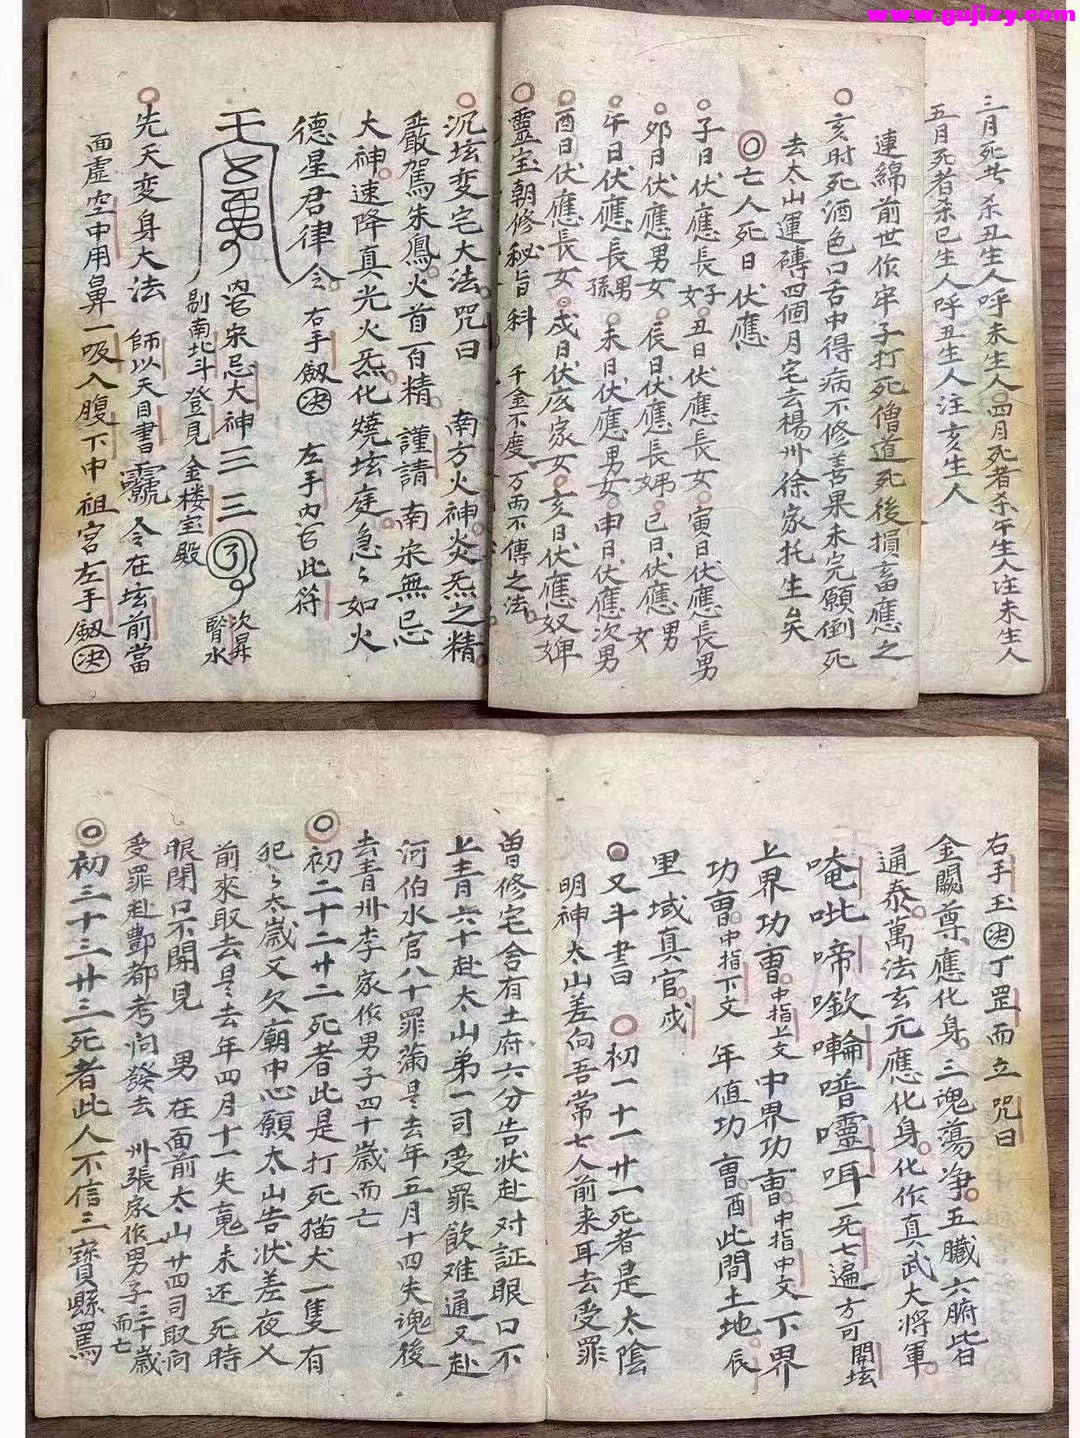 www.gujizy.com
三月死者杀丑生人呼未生人四月死者杀午生人注未生人
五月死者杀巳生人呼丑生人注亥生人
連綿前世作牢子打死僧道死後損畜應之
亥时死酒色口舌中得病不修善果未完願倒死
去太山運磚四個月宅去楊州徐家托生矣
亡人死日伏應
子日伏應長子女丑日伏應長女寅日伏應長男
夘日伏應男女辰日伏應長婦巳日伏應男女
午日伏應長男孫未日伏應男女申日伏應次男
酉日伏應長女戌日伏应家女亥日伏應奴婢
靈宝朝修秘旨科 千金不度万两不傳之法
沉垓变宅大法咒曰 南方火神炎炁之精
嚴駕朱鳳火首百精 謹請南宋無忌
大神速降真光火炁化燒垓庭急々如火
德星君律令 右手劔决 左手内此符
宋忌大神三三
剔南北斗登見金楼宝殿
次昇腎水
先天変身大法 師以天目書 令在垓前當
面虚空中用鼻一吸入腹下中祖宮左手劔决
右手玉决丁罡而立 咒曰
金闕尊應化身三魂蕩净五臟六腑皆
通泰萬法玄元應化身化作真武大將軍
唵吡啼噋囀噃囈咡一炁七遍方可開垓
上界功曹中指上文中界功曹中指中文下界
功曹中指下文 年值功曹酉此間土地辰
里域真官戍
又斗書曰 初一十一廿一死者是太陰
明神太山差向吾常七人前来耳去受罪
曽修宅舍有土府六分告状赴对証眼口不
上青六十赴太山弟一司受罪飲难通又赴
河伯水官八十罪滿是去年五月十四失魂後
去青州李家作男子四十歲而亡
初二十二廿二死者此是打死猫犬一隻有
犯々太歲又欠廟中心願太山告状差夜乂
前來取去是去年四月十一失魂未还死時
眼閉口不開見 男在面前太山廿四司取问
受罪赴酆都考问發去 州張家作男子三十歲而亡
初三十三廿三死者此人不信三寳縣罵